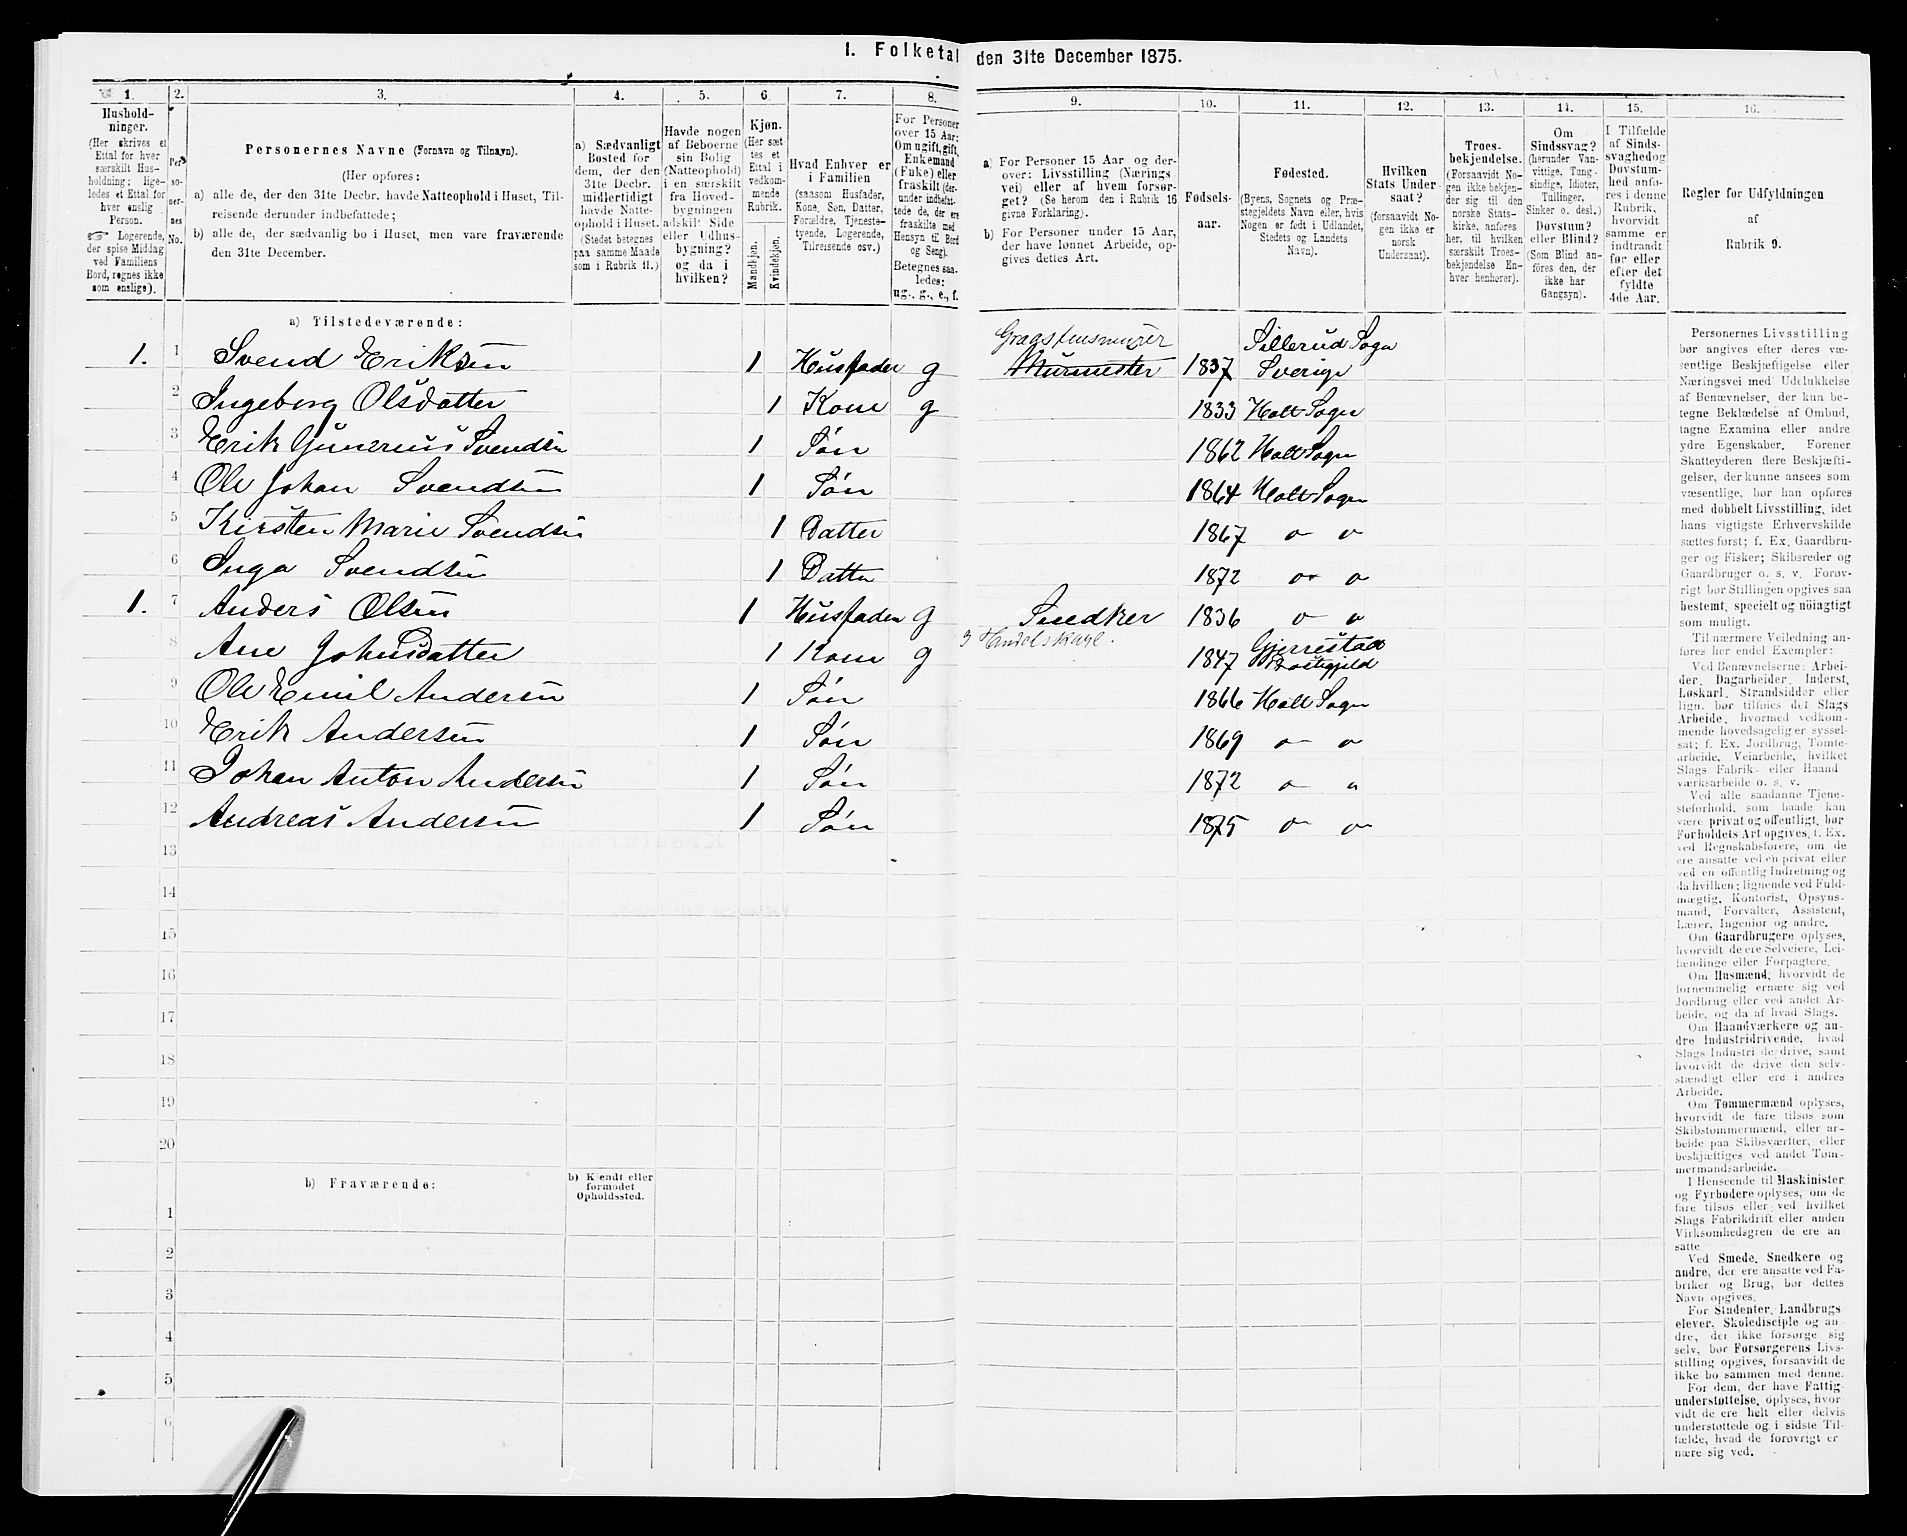 I. Folketal den 31te December 1875.
1. 2. 3. 4. 5. 6. 7. 8. 9. 10. 11. 12. 13. 14. 15. 16.
Hushold-
ninger.
(Her skrives et
Ettal for hver
særskilt Hus-
holdning; lige-
ledes et Ettal for
hver enslig
Person.
☞ Logerende,
der spise Middag
ved Familiens
Bord, regnes ikke
som enslige).
Per
so-
ner-
nes
No.
Personernes Navne (Fornavn og Tilnavn).
(Her opføres:
a) alle de, der den 31te Decbr. havde Natteophold i Huset, Til-
reisende derunder indbefattede;
b) alle de, der sædvanlig bo i Huset, men vare fraværende
den 31te December.
a) Sædvanligt
Bosted for
dem, der den
31te Decbr.
midlertidigt
havde Natte-
ophold i Huset.
(Stedet betegnes
paa samme Maade
som i Rubrik 11.)
Havde nogen
af Beboerne
sin Bolig
(Natteophold)
i en særskilt
fra Hoved-
bygningen
adskilt Side
eller Udhus-
bygning?
og da i
hvilken?
Kjøn.
(Her sæt
tes et
Ettal i
vedkom-
mende
Rubrik.
Mandkjøn.
Kvindekjøn.
Hvad Enhver er
i Familien
(saasom Husfader,
Kone, Søn, Datter,
Forældre, Tjeneste-
tyende, Logerende,
Tilreisende osv.)
For Personer
over 15 Aar:
Om ugift, gift,
Enkemand
(Enke) eller
fraskilt (der-
under indbefat-
tede de, der ere
fraskilte med
Hensyn til Bord
og Seng).
Betegnes saa-
ledes:
ug., g., e., f.
a) For Personer 15 Aar og der-
over: Livsstilling (Nærings
vei) eller af hvem forsør-
get? (Se herom den i Rubrik 16
givne Forklaring).
b) For Personer under 15 Aar,
der have lønnet Arbeide, op-
gives dettes Art.
Fødsels-
aar.
Fødested.
(Byens, Sognets og Præ-
stegjeldets Navn eller, hvis
Nogen er født i Udlandet,
Stedets og Landets
Navn).
Hvilken
Stats Under-
saat?
(forsaavidt No-
gen ikke er
norsk
Undersaat).
Troes-
bekjendelse.
(Forsaavidt No-
gen ikke bekjen-
der sig til den
norske Stats-
kirke, anføres
her, til hvilken
særskilt Troes-
bekjendelse En-
hver henhører).
Om
Sindssvag?
(herunder Van-
vittige, Tung-
sindige, Idioter,
Tullinger,
Sinker o. desl.)
Døvstum?
eller Blind?
(Som Blind an-
føres den, der
ikke har
Gangsyn).
I Tilfælde
af Sinds-
svaghed og
Døvstum-
hed anfø-
res i denne
Rubrik,
hvorvidt
samme er
indtraadt
før eller
efter det
fyldte
4de Aar.
Regler for Udfyldningen
af
Rubrik 9.
a) Tilstedeværende:
1. 1 Svend Eriksen 1 Husfader g Graastensmurer Murmester 1837 Sillerud Sogn Sverige
2 Ingeborg Olsdatter 1 Kone g 1833 Holt Sogn
3 Erik Gunerius Svendsen 1 Søn 1862 Holt Sogn
4 Ole Johan Svendsen 1 Søn 1864 Holt Sogn
5 Kirsten Marie Svendsen 1 Datter 1867 o o
6 Inga Svendsen 1 Datter 1872 o o
1. 7 Anders Olsen 1 Husfader g Snedker 1836 o o
8 Ane Johnsdatter 1 Kone g 1847 Gjerrestad Præstegjeld
9 Ole Emil Andersen 1 Søn 1866 Holt Sogn
10 Erik Andersen 1 Søn 1869 o o
11 Johan Anton Andersen 1 Søn 1872 o o
12 Andreas Andersen 1 Søn 1875 o o
13
14
15
16
17
18
19
20
b) Fraværende:
b) Kjendt eller
formodet
Opholdssted.
1
2
3
4
5
6
Personernes Livsstilling
bør angives efter deres væ-
sentlige Beskjæftigelse eller
Næringsvei med Udelukkelse
af Benævnelser, der kun be-
tegne Beklædelse af Ombud,
tagne Examina eller andre
ydre Egenskaber. Forener
Skatteyderen flere Beskjæfti-
gelser, der kunne ansees som
væsentlige, bør han opføres
med dobbelt Livsstilling, idet
hans vigtigste Erhvervskilde
sættes først; f. Ex. Gaardbru-
ger og Fisker; Skibsreder og
Gaardbruger o. s. v. Forøv-
rigt bør Stillingen opgives saa
bestemt, specielt og nøiagtigt
som muligt.
Til nærmere Veiledning an-
føres her endel Exempler:
Ved Benævnelserne: Arbei-
der, Dagarbeider, Inderst,
Løskarl, Strandsidder eller
lign. bør tilføies det Slags
Arbeide, hvormed vedkom-
mende hovedsagelig er syssel-
sat; f. Ex. Jordbrug, Tomte-
arbeide, Veiarbeide, hvilket
Slags Fabrik- eller Haand
værksarbeide o. s. v.
Ved alle saadanne Tjene-
steforhold, som baade kan
være privat og offentligt, bør
Forholdets Art opgives, t. Ex.
ved Regnskabsførere, om de
ere ansatte ved en privat eller
ved en offentlig Indretning og
da hvilken; lignende ved Fuld-
mægtig, Kontorist, Opsyns-
mand, Forvalter, Assistent,
Lærer, Ingeniør og andre.
Om Gaardbrugere oplyses,
hvorvidt de ere Selveiere, Lei-
lændinge eller Forpagtere.
Om Husmænd, hvorvidt de
fornemmelig ernære sig ved
Jordbrug eller ved andet Ar-
beide, og da af hvad Slags.
Om Haandværkere og an-
dre Industridrivende, hvad
Slags Industri de drive, samt
hvorvidt de drive den selv-
stændigt eller ere i andres
Arbeide.
Om Tømmermænd oplyses,
hvorvidt de fare tilsøs som
Skibstømmermænd, eller ar-
beide paa Skibsværfter, eller
beskjæftiges ved andet Tøm-
mermandsarbeide.
I Henseende til Maskinister
og Fyrbødere oplyses, om de
fare tilsøs eller ved hvilket
Slags Fabrikdrift eller anden
Virksomhedsgren de ere an-
satte
Ved Smede, Snedkere og
andre, der ere ansatte ved Fa-
briker og Brug, bør dettes
Navn opgives.
For Studenter, Landbrugs
elever, Skoledisciple og an-
dre, der ikke forsørge sig
selv, bør Forsørgerens Livs-
stilling opgives, forsaavidt de
ikke bo sammen med denne.
For dem, der have Fattig-
understøttelse, oplyses, hvor-
vidt de ere helt eller delvis
understøttede og i sidste Til-
fælde, hvad de forøvrigt er
nære sig ved.